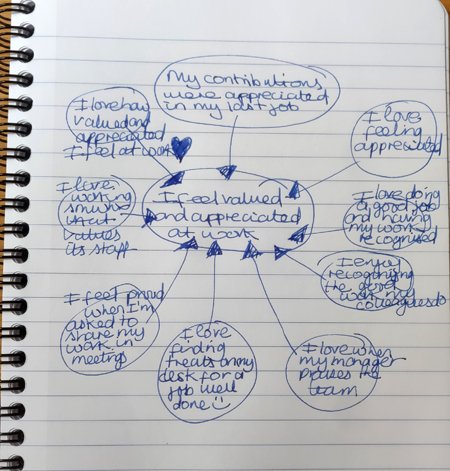 My contributions
were appreciated
in my last job
I love how
valued and
appreciated
I feel at work
I love
feeling
appreciated
I love
working
that
values
its staff
I feel valued
and appreciated
at work
I love doing
a good job
and having
my work
recognised
I enjoy
recognising
the good
work my
colleagues do
I feel proud
when I'm
asked to
share my
work in
meetings
I love
finding
treats on my
desk for a
job well
done
I love when
my manager
praises the
team